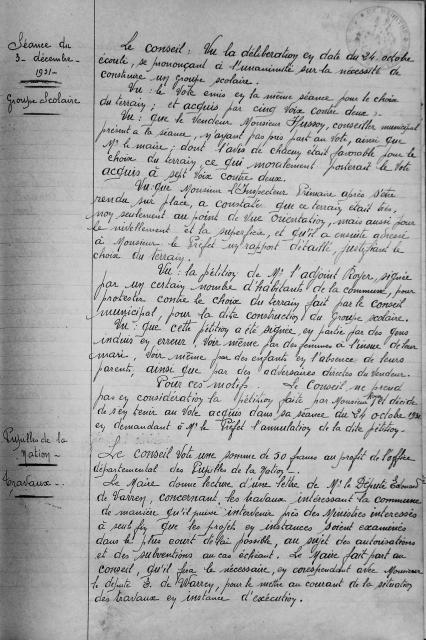 Séance du
3 décembre
1931
Groupe Scolaire
Le conseil : Vu la délibération en date du 24 octobre
écoulé, se prononçant à l'unanimité sur la nécessité de
construire un groupe scolaire.
Vu : le Vote émis en la même séance pour le choix
du terrain ; et acquis par cinq voix contre deux.
Vu : que le Vendeur Monsieur Husson, conseiller municipal
présent à la séance, n'ayant pas pris part au Vote, ainsi que
Mr le maire ; dont l'avis de chacun était favorable pour le
choix du terrain, ce qui moralement porterait le Vote
acquis à sept Voix contre deux.
Vu que Monsieur l'Inspecteur Primaire après s'être
rendu sur place, a constaté que ce terrain était bien,
non seulement au point de vue orientation, mais aussi pour
le nivellement et la superficie, et qu'il a ensuite adressé
à Monsieur le Préfet un rapport détaillé, justifiant le
choix du terrain.
Vu : la pétition de Mr l'adjoint Royer, signée
par un certain nombre d'habitants de la commune, pour
protester contre le choix du terrain fait par le conseil
municipal, pour la dite construction du Groupe scolaire.
Vu : que cette pétition a été signée, en partie par des gens
induits en erreur, voir même par des femmes à l'insue de leur
mari, voir même par des enfants en l'absence de leurs
parents, ainsi que par des adversaires directes du Vendeur.
Pour ces motifs. Le Conseil ne prend
pas en considération la pétition faite par Monsieur Royer et décide
de s'en tenir au Vote acquis dans sa séance du 24 octobre 1931
en demandant à Mr le Préfet l'annulation de la dite pétition.
Pupilles de la
Nation
Le conseil Vote une somme de 50 francs au profit de l'office
départemental des Pupilles de la Nation.
Travaux
Le Maire donne lecture d'une lettre de Mr le Député Edouard
de Warren, concernant les travaux intéressant la commune
de manière qu'il puisse intervenir près des Ministres intéressés
à seule fin que les projets en instances soient examinés
dans le plus court délai possible, au sujet des autorisations
et des subventions au cas échéant. Le Maire fait part au
conseil, qu'il fera le nécessaire, en correspondant avec Monsieur
le député E. de Warren, pour le mettre au courant de la situation
des travaux en instance d'exécution.